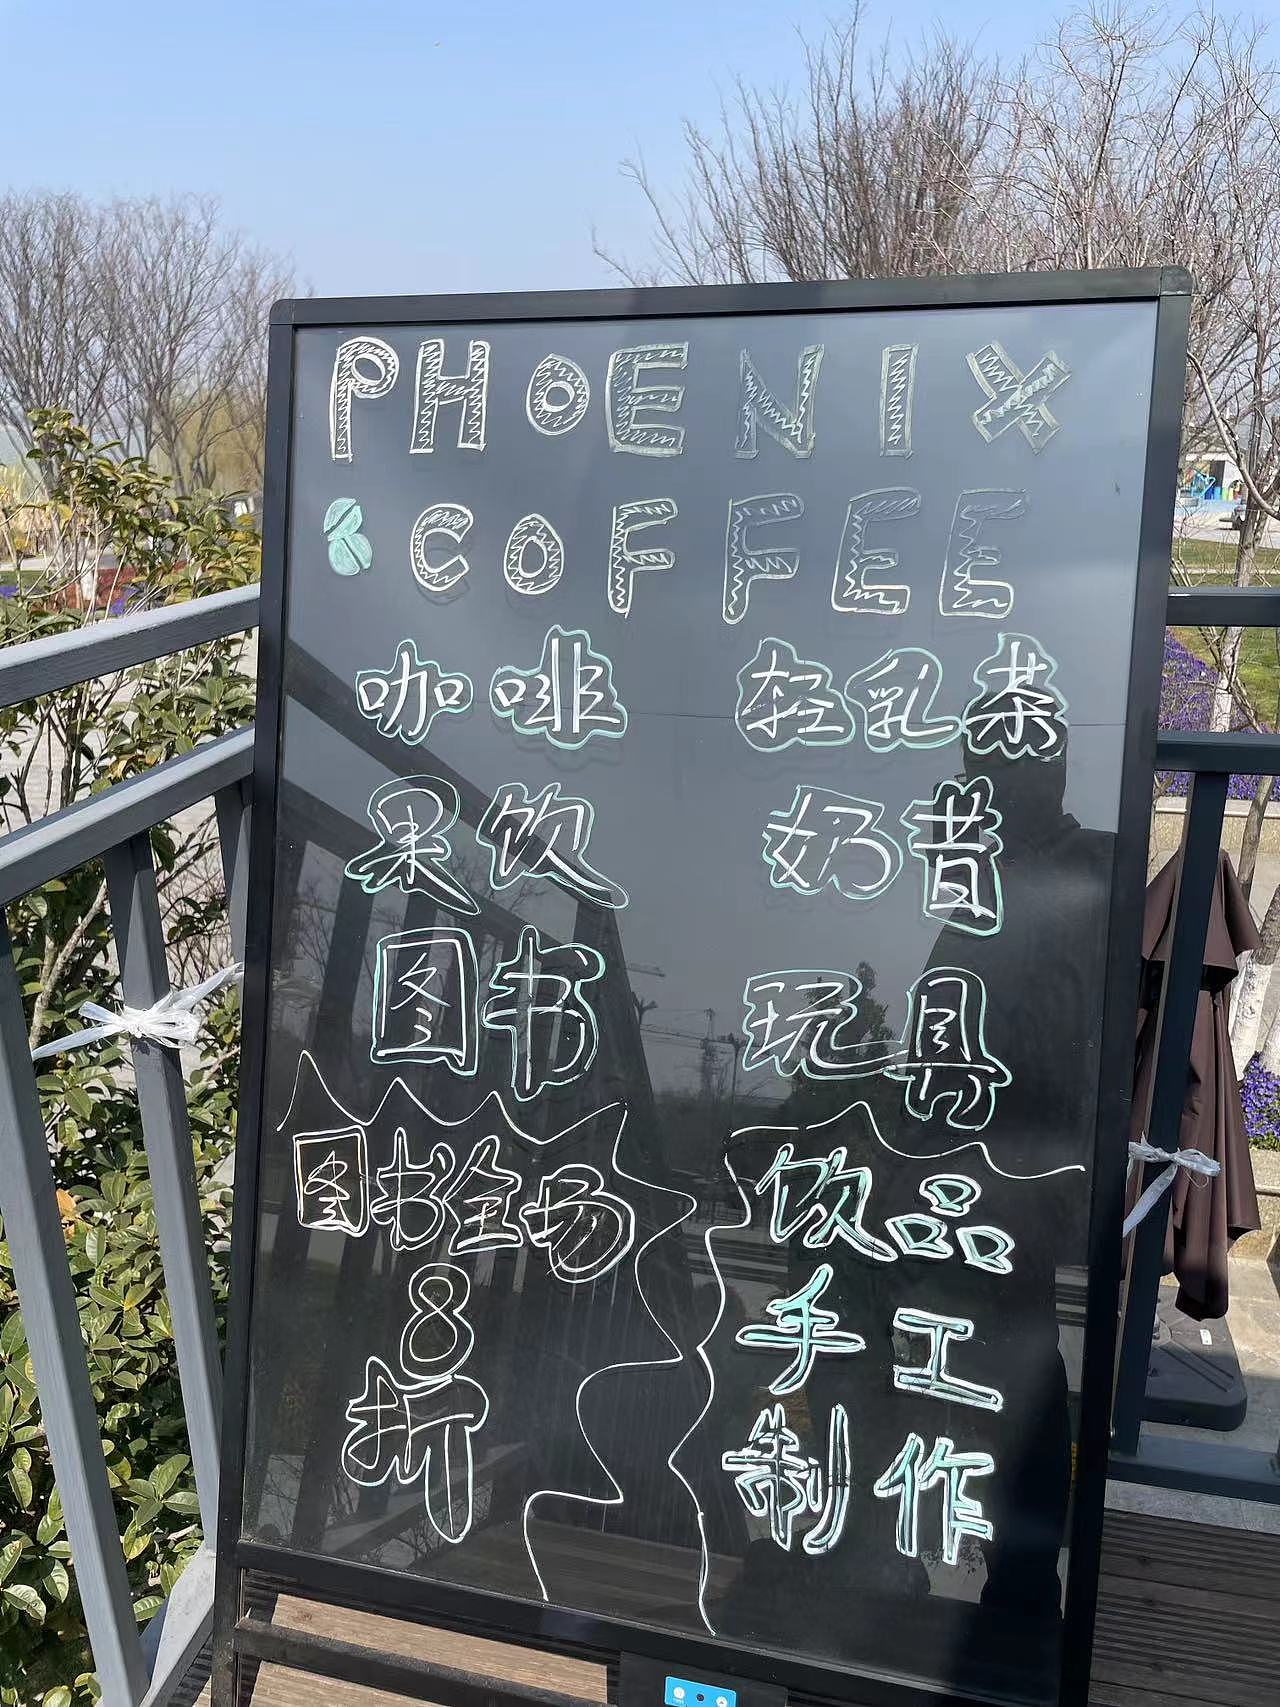 PHOENIX
COFFEE
咖啡 轻乳茶
果饮 奶昔
图书 玩具
图书全场
8
折
饮品
手工
制作